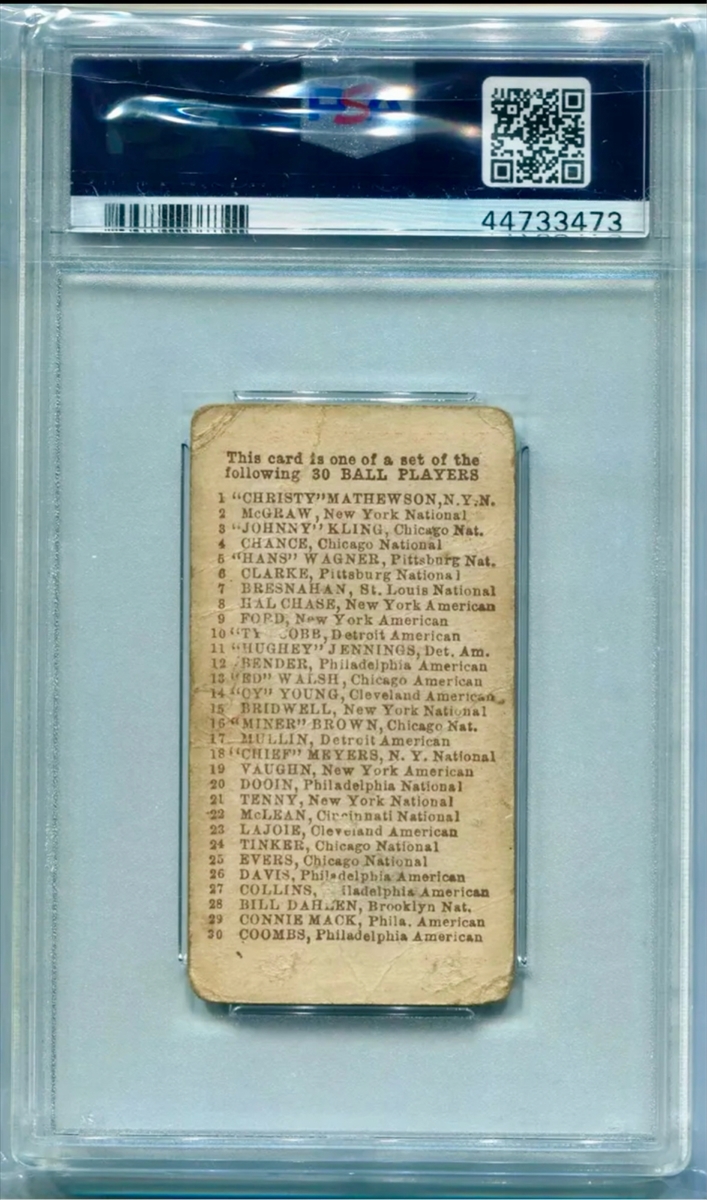 PSA
44733473
This card is one of a set of the
following 30 BALL PLAYERS
1 "CHRISTY" MATHEWSON, N.Y.N.
2 McGRAW, New York National
3 "JOHNNY" KLING, Chicago Nat.
4 CHANCE, Chicago National
5 "HANS" WAGNER, Pittsburg Nat.
6 CLARKE, Pittsburg National
7 BRESNAHAN, St. Louis National
8 HAL CHASE, New York American
9 FORD, New York American
10 "TY OBB, Detroit American
11 "HUGHEY" JENNINGS, Det. Am.
12 BENDER, Philadelphia American
13 "ED" WALSH, Chicago American
14 "CY" YOUNG, Cleveland American
15 BRIDWELL, New York National
16 "MINER" BROWN, Chicago Nat.
17 MULLIN, Detroit American
18 "CHIEF" MEYERS, N. Y. National
19 VAUGHN, New York American
20 DOOIN, Philadelphia National
21 TENNY, New York National
22 McLEAN, Cincinnati National
23 LAJOIE, Cleveland American
24 TINKER, Chicago National
25 EVERS, Chicago National
26 DAVIS, Philadelphia American
27 COLLINS, iladelphia American
28 BILL DAHLEN, Brooklyn Nat.
29 CONNIE MACK, Phila. American
30 COOMBS, Philadelphia American